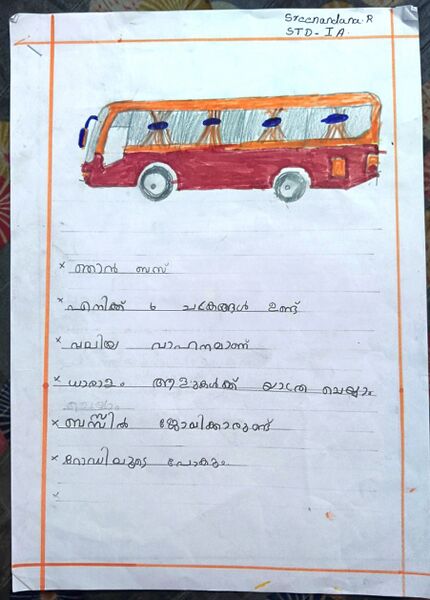 Sreenandana.R
STD - I A
× ഞാൻ ബസ്
× എനിക്ക് 6 ചക്രങ്ങൾ ഉണ്ട്
× വലിയ വാഹനമാണ്
× ധാരാളം ആളുകൾക്ക് യാത്ര ചെയ്യാം
× ബസ്സിൽ ജോലിക്കാരുണ്ട്
× റോഡിലൂടെ പോകും.
×